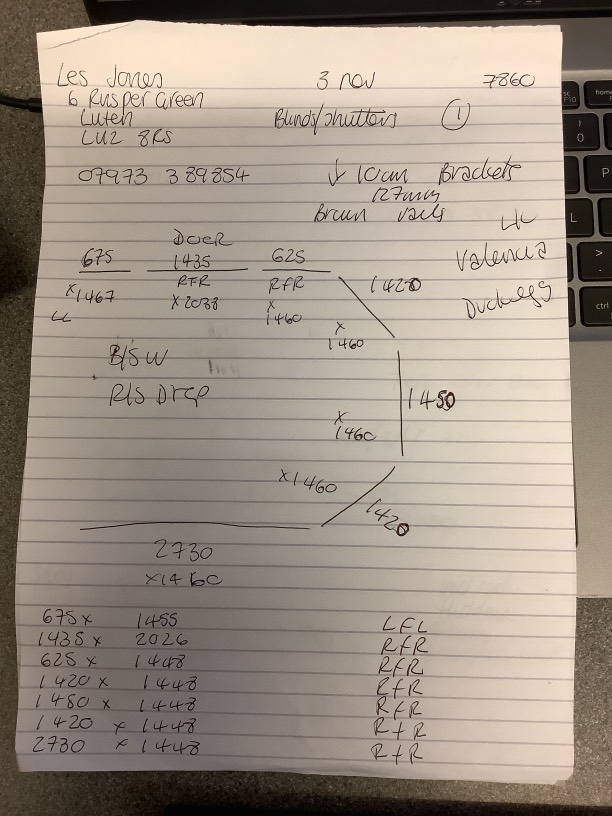 Les Jones 3 nov 7860
6 Rusper Green
Luten Blinds/shutters 1
LU2 8RS
07973 389854 ↓ 10cm Brackets
127mm
Braun vails
Valencia
Duckegg
DOOR
675 1435 625 1420
RFR RFR
x1467 x 2038 x 1460
LL
x 1460
B/S W
R/S Drop 1450
x 1460
x1460 1420
2730
x1460
675 x 1455 LFL
1435 x 2026 RFR
625 x 1448 RFR
1420 x 1448 RFR
1450 x 1448 RFR
1420 x 1448 RFR
2730 x 1448 RFR